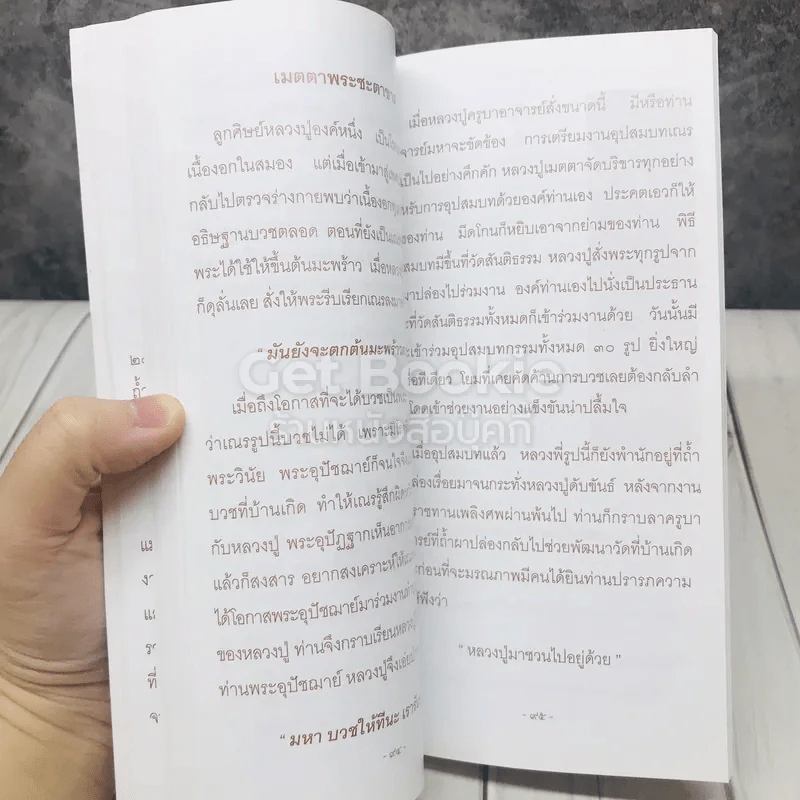 เมตตาพระชะตาขาด
ลูกศิษย์หลวงปู่องค์หนึ่ง
เนื้องอกในสมอง แต่เมื่อเข้ามาสู่
กลับไปตรวจร่างกายพบว่าเนื้องอก
อธิษฐานบวชตลอด ตอนที่ยังเป็น
พระได้ใช้ให้ขึ้นต้นมะพร้าว เมื่อหลวง
ก็ดุลั่นเลย สั่งให้พระรีบเรียกเณรลงมา
" มันยังจะตกต้นมะพร้าว
เมื่อถึงโอกาสที่จะได้บวชเป็น
ว่าเณรรูปนี้บวชไม่ได้ เพราะมี
พระวินัย พระอุปัชฌาย์ก็จนใจจึง
บวชที่บ้านเกิด ทำให้เณรรู้สึกผิด
กับหลวงปู่ พระอุปัฏฐากเห็นอาการ
แล้วก็สงสาร อยากสงเคราะห์ให้
ได้โอกาสพระอุปัชฌาย์มาร่วมงาน
ของหลวงปู่ ท่านจึงกราบเรียนหลวง
ท่านพระอุปัชฌาย์ หลวงปู่จึงเอ่ย
" มหา บวชให้ทีนะ เรา
- ๙๔ -
เมื่อหลวงปู่ครูบาอาจารย์สั่งขนาดนี้ มีหรือท่าน
จารย์มหาจะขัดข้อง การเตรียมงานอุปสมบทเณร
เป็นไปอย่างคึกคัก หลวงปู่เมตตาจัดบริขารทุกอย่าง
หรับการอุปสมบทด้วยองค์ท่านเอง ประคตเอวก็ให้
ของท่าน มีดโกนก็หยิบเอาจากย่ามของท่าน พิธี
สมบทมีขึ้นที่วัดสันติธรรม หลวงปู่สั่งพระทุกรูปจาก
มาปล่องไปร่วมงาน องค์ท่านเองไปนั่งเป็นประธาน
ะที่วัดสันติธรรมทั้งหมดก็เข้าร่วมงานด้วย วันนั้นมี
ะเข้าร่วมอุปสมบทกรรมทั้งหมด ๓๐ รูป ยิ่งใหญ่
อทีเดียว โยมที่เคยคิดค้านการบวชเลยต้องกลับลำ
โดดเข้าช่วยงานอย่างแข็งขันน่าปลื้มใจ
เมื่ออุปสมบทแล้ว หลวงพี่รูปนี้ก็ยังพำนักอยู่ที่ถ้ำ
ล่องเรื่อยมาจนกระทั่งหลวงปู่ดับขันธ์ หลังจากงาน
ราชทานเพลิงศพผ่านพ้นไป ท่านก็กราบลาครูบา
ารย์ที่ถ้ำผาปล่องกลับไปช่วยพัฒนาวัดที่บ้านเกิด
ะก่อนที่จะมรณภาพมีคนได้ยินท่านปรารภความ
ห้ฟังว่า
" หลวงปู่มาชวนไปอยู่ด้วย "
- ๙๕ -
Get Bookie
ร้านหนังสือบุคกี้